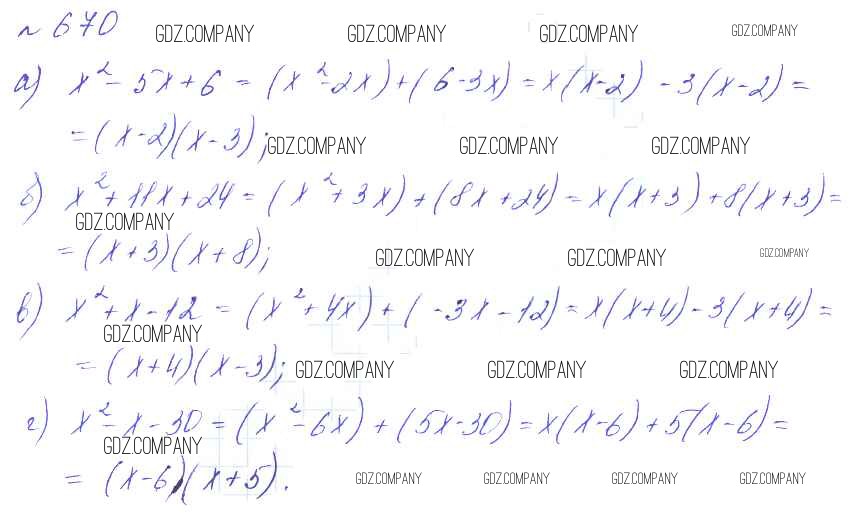 № 670 GDZ.COMPANY GDZ.COMPANY GDZ.COMPANY GDZ.COMPANY
а) x² - 5x + 6 = (x² - 2x) + (6 - 3x) = x(x - 2) - 3(x - 2) =
= (x - 2)(x - 3); GDZ.COMPANY GDZ.COMPANY GDZ.COMPANY
б) x² + 11x + 24 = (x² + 3x) + (8x + 24) = x(x + 3) + 8(x + 3) =
GDZ.COMPANY
= (x + 3)(x + 8); GDZ.COMPANY GDZ.COMPANY GDZ.COMPANY
в) x² + x - 12 = (x² + 4x) + (-3x - 12) = x(x + 4) - 3(x + 4) =
GDZ.COMPANY
= (x + 4)(x - 3); GDZ.COMPANY GDZ.COMPANY GDZ.COMPANY
г) x² - x - 30 = (x² - 6x) + (5x - 30) = x(x - 6) + 5(x - 6) =
GDZ.COMPANY
= (x - 6)(x + 5). GDZ.COMPANY GDZ.COMPANY GDZ.COMPANY GDZ.COMPANY